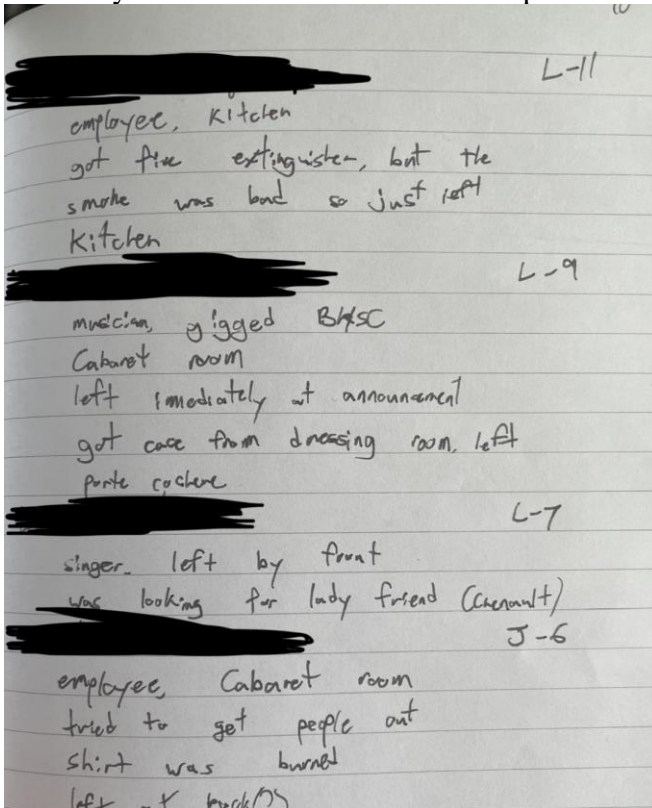 L-11
employee, Kitchen
got fire extinguisher, but the
smoke was bad so just left
Kitchen
L-9
musician, gigged BHSC
Cabaret room
left imediately at announcement
got case from dressing room, left
porte cochere
L-7
singer. left by front
was looking for lady friend (Chenault)
J-6
employee, Cabaret room
tried to get people out
shirt was burned
left at